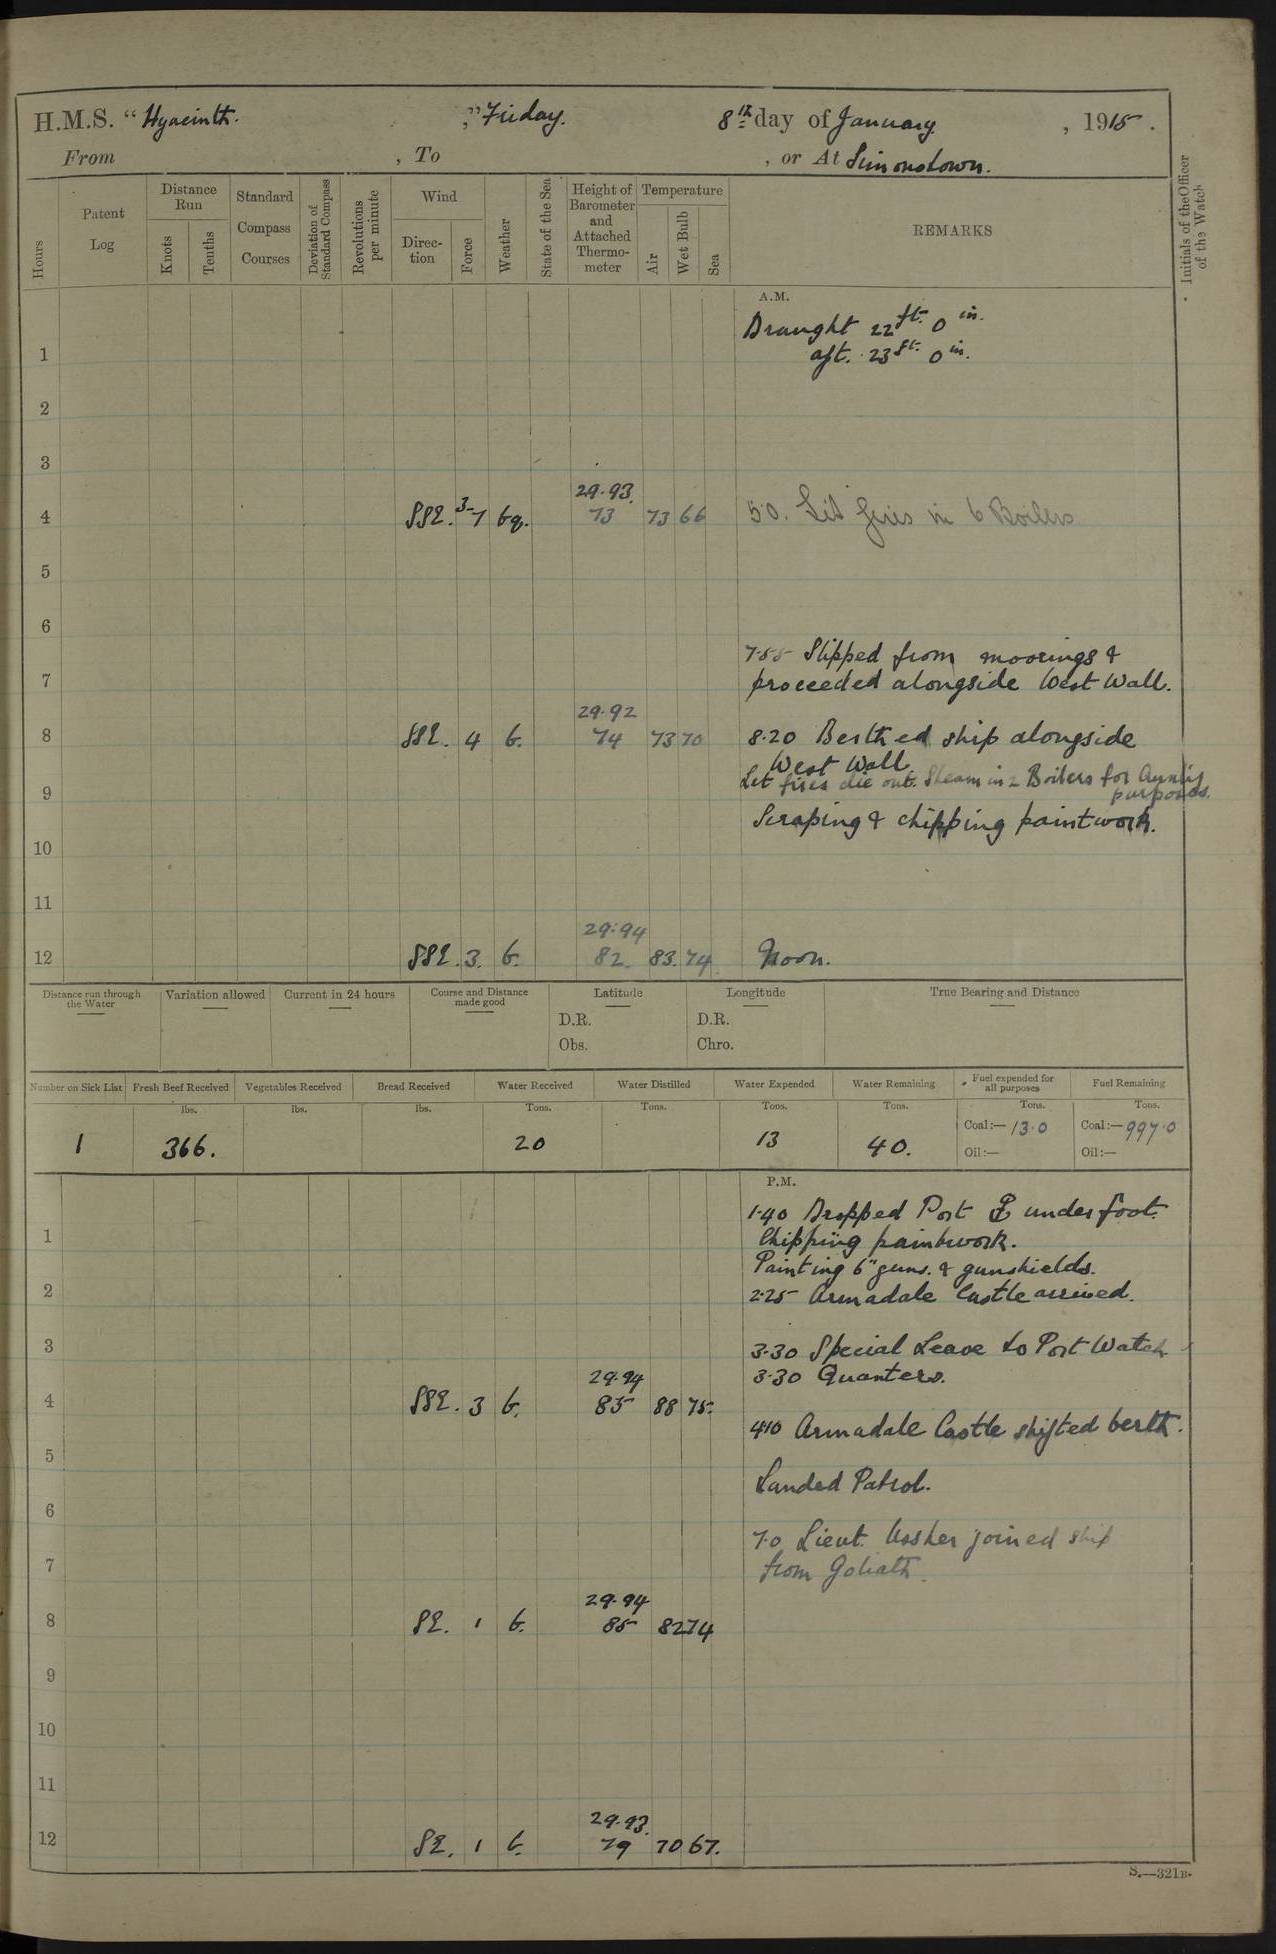 H.M.S. "Hyacinth. ," Friday. 8th day of January , 1915.
From , To , or At Simonstown.
Hours
Patent Log
Distance Run
Knots
Tenths
Standard Compass Courses
Deviation of Standard Compass
Revolutions per minute
Wind
Direction
Force
Weather
State of the Sea
Height of Barometer and Attached Thermometer
Temperature
Air
Wet Bulb
Sea
REMARKS
Initials of the Officer of the Watch
A.M.
Draught 22 ft. 0 in.
1 aft. 23 ft. 0 in.
2
3
29.93
4 SSE. 3-7 bq. 73 73 66 5.0. Lit fires in 6 Boilers
5
6
7.55 Slipped from moorings &
7 proceeded alongside West Wall.
29.92
8 SSE. 4 b. 74 73 70 8.20 Berthed ship alongside
West Wall.
Let fires die out. Steam in 2 Boilers for
9 purposes.
Scraping & chipping paintwork.
10
11
29.94
12 SSE. 3. b. 82. 83. 74 Noon.
Distance run through the Water
Variation allowed
Current in 24 hours
Course and Distance made good
Latitude
D.R.
Obs.
Longitude
D.R.
Chro.
True Bearing and Distance
Number on Sick List Fresh Beef Received Vegetables Received Bread Received Water Received Water Distilled Water Expended Water Remaining Fuel expended for all purposes Fuel Remaining
lbs. lbs. lbs. Tons. Tons. Tons. Tons. Tons. Tons.
1 366. 20 13 40. Coal:— 13.0 Coal:— 997.0
Oil:— Oil:—
P.M.
1.40 Dropped Port ⚓ underfoot.
1 Chipping paintwork.
Painting 6" guns. & gunshields.
2 2.25 Armadale Castle arrived.
3 3.30 Special Leave to Port Watch
29.94 3.30 Quarters.
4 SSE. 3 b. 85 88 75.
4.10 Armadale Castle shifted berth.
5
Landed Patrol.
6
7.0 Lieut. joined ship
7 from Goliath.
29.94
8 SE. 1 b. 85 82 74
9
10
11
29.93.
12 SE. 1 b. 79 70 67.
S.—321B.